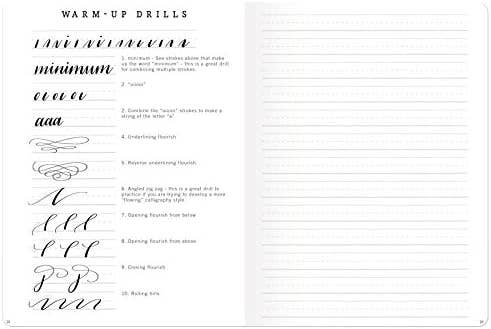 WARM-UP DRILLS
minimum
1. minimum - See strokes above that make
up the word "minimum" - this is a great drill
for combining multiple strokes.
2.
aaa
Combine the strokes to make a
string of the letter "a"
4. Underlining flourish
5. Reverse underlining flourish
6. Angled zig zag - this is a great drill to
practice if you are trying to develop a more
"flowing" calligraphy style
7. Opening flourish from below
8. Opening flourish from above
9. Closing flourish
10. Rolling hills